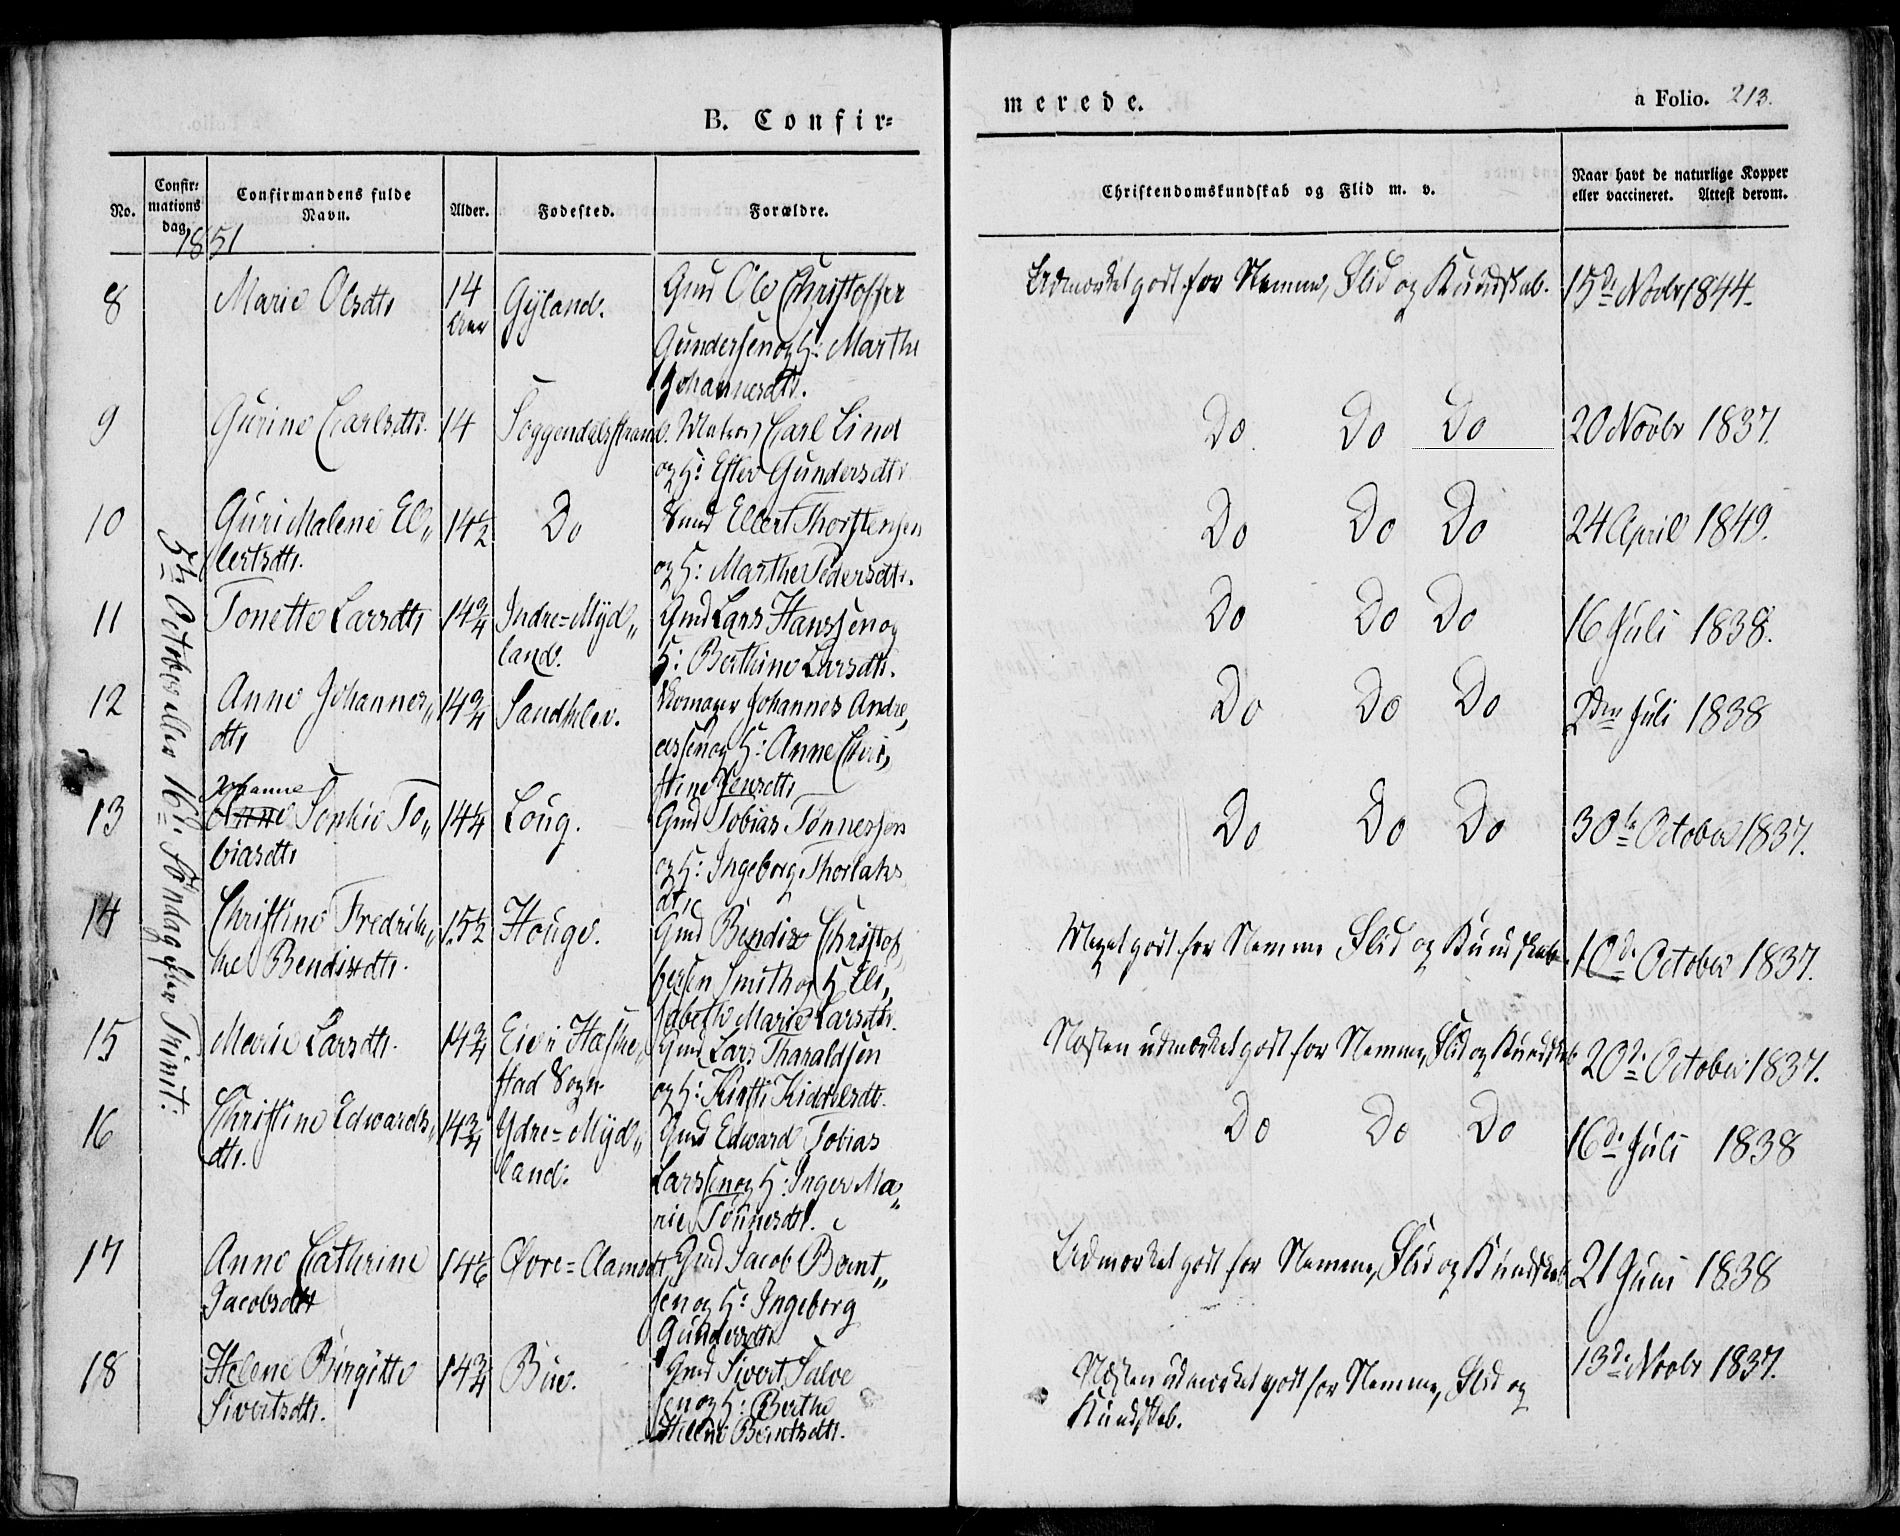 B. Confir=
merede.
a Folio. 213.
No.
Confir=
mations
dag.
Confirmandens fulde
Navn.
Alder.
Fødested.
Forældre.
Christendomskundskab og Flid m. v.
Naar havt de naturlige Kopper
eller vaccineret. Attest derom.
1851
5te October eller 16d. Søndag efter Trinit:
8 Marie Olsdtr 14 Aar Gyland. Gmd Ole Christoffer
Gundersen og H: Marthe
Johannesdtr.
Udmærket godt for Nemme, Flid og Kundskab. 15de Novbr 1844.
9 Gurine Carlsdtr. 14 Soggendalsstrand. Matros Carl Lind
og H: Ester Gundersdtr.
Do Do Do 20 Novbr 1837.
10 Guri Malene El„
lertsdtr. 14½ Do Smed Ellert Thorstensen
og H: Marthe Pedersdtr.
Do Do Do 24 April 1849.
11 Tonette Larsdtr 14¾ Indre=Myd„
land. Gmd Lars Hanssen og
H: Berthine Larsdtr.
Do Do Do 16 Juli 1838.
12 Anne Johannes„
dtr 14¾ Sandklev. Skomager Johannes Andre„
assen og H: Anne Chri„
stine Jensdtr
Do Do Do 2den Juli 1838
13 Johanne
Anne Sophie To„
biasdtr 14¼ Loug. Gmd Tobias Tønnessen
og H: Ingeborg Thorlaks
dtr.
Do Do Do 30te October 1837.
14 Christine Fredrik„
ke Bendixdtr. 15½ Houge. Gmd Bendix Christof„
fersen Smith og H Eli„
sabeth Marie Larsdtr.
Meget godt for Nemme Flid og Kundskab. 10de October 1837.
15 Marie Larsdtr. 14¾ Eie i Heske„
stad Sogn Gmd Lars Tharaldsen
og H: Kirsti Kiddelsdtr.
Næsten udmærket godt for Nemme, Flid og Kundskab 20de October 1837.
16 Christine Edwards„
dtr. 14¾ Ydre=Myd„
land. Gmd Edward Tobias
Larssen og H: Inger Ma„
rie Tønnesdtr.
Do Do Do 16de Juli 1838
17 Anne Cathrine
Jacobsdtr 14⅙ Øvre=Aamodt Gmd Jacob Bernt„
sen og H: Ingeborg
Gundersdtr
Udmærket godt for Nemme, Flid og Kundskab 21 Juni 1838
18 Helene Birgitte
Sivertsdtr. 14¾ Bue. Gmd Sivert Salve
sen og H: Berthe
Helene Berntsdtr.
Næsten udmærket godt for Nemme, Flid og
Kundskab.
13de Novbr 1837.